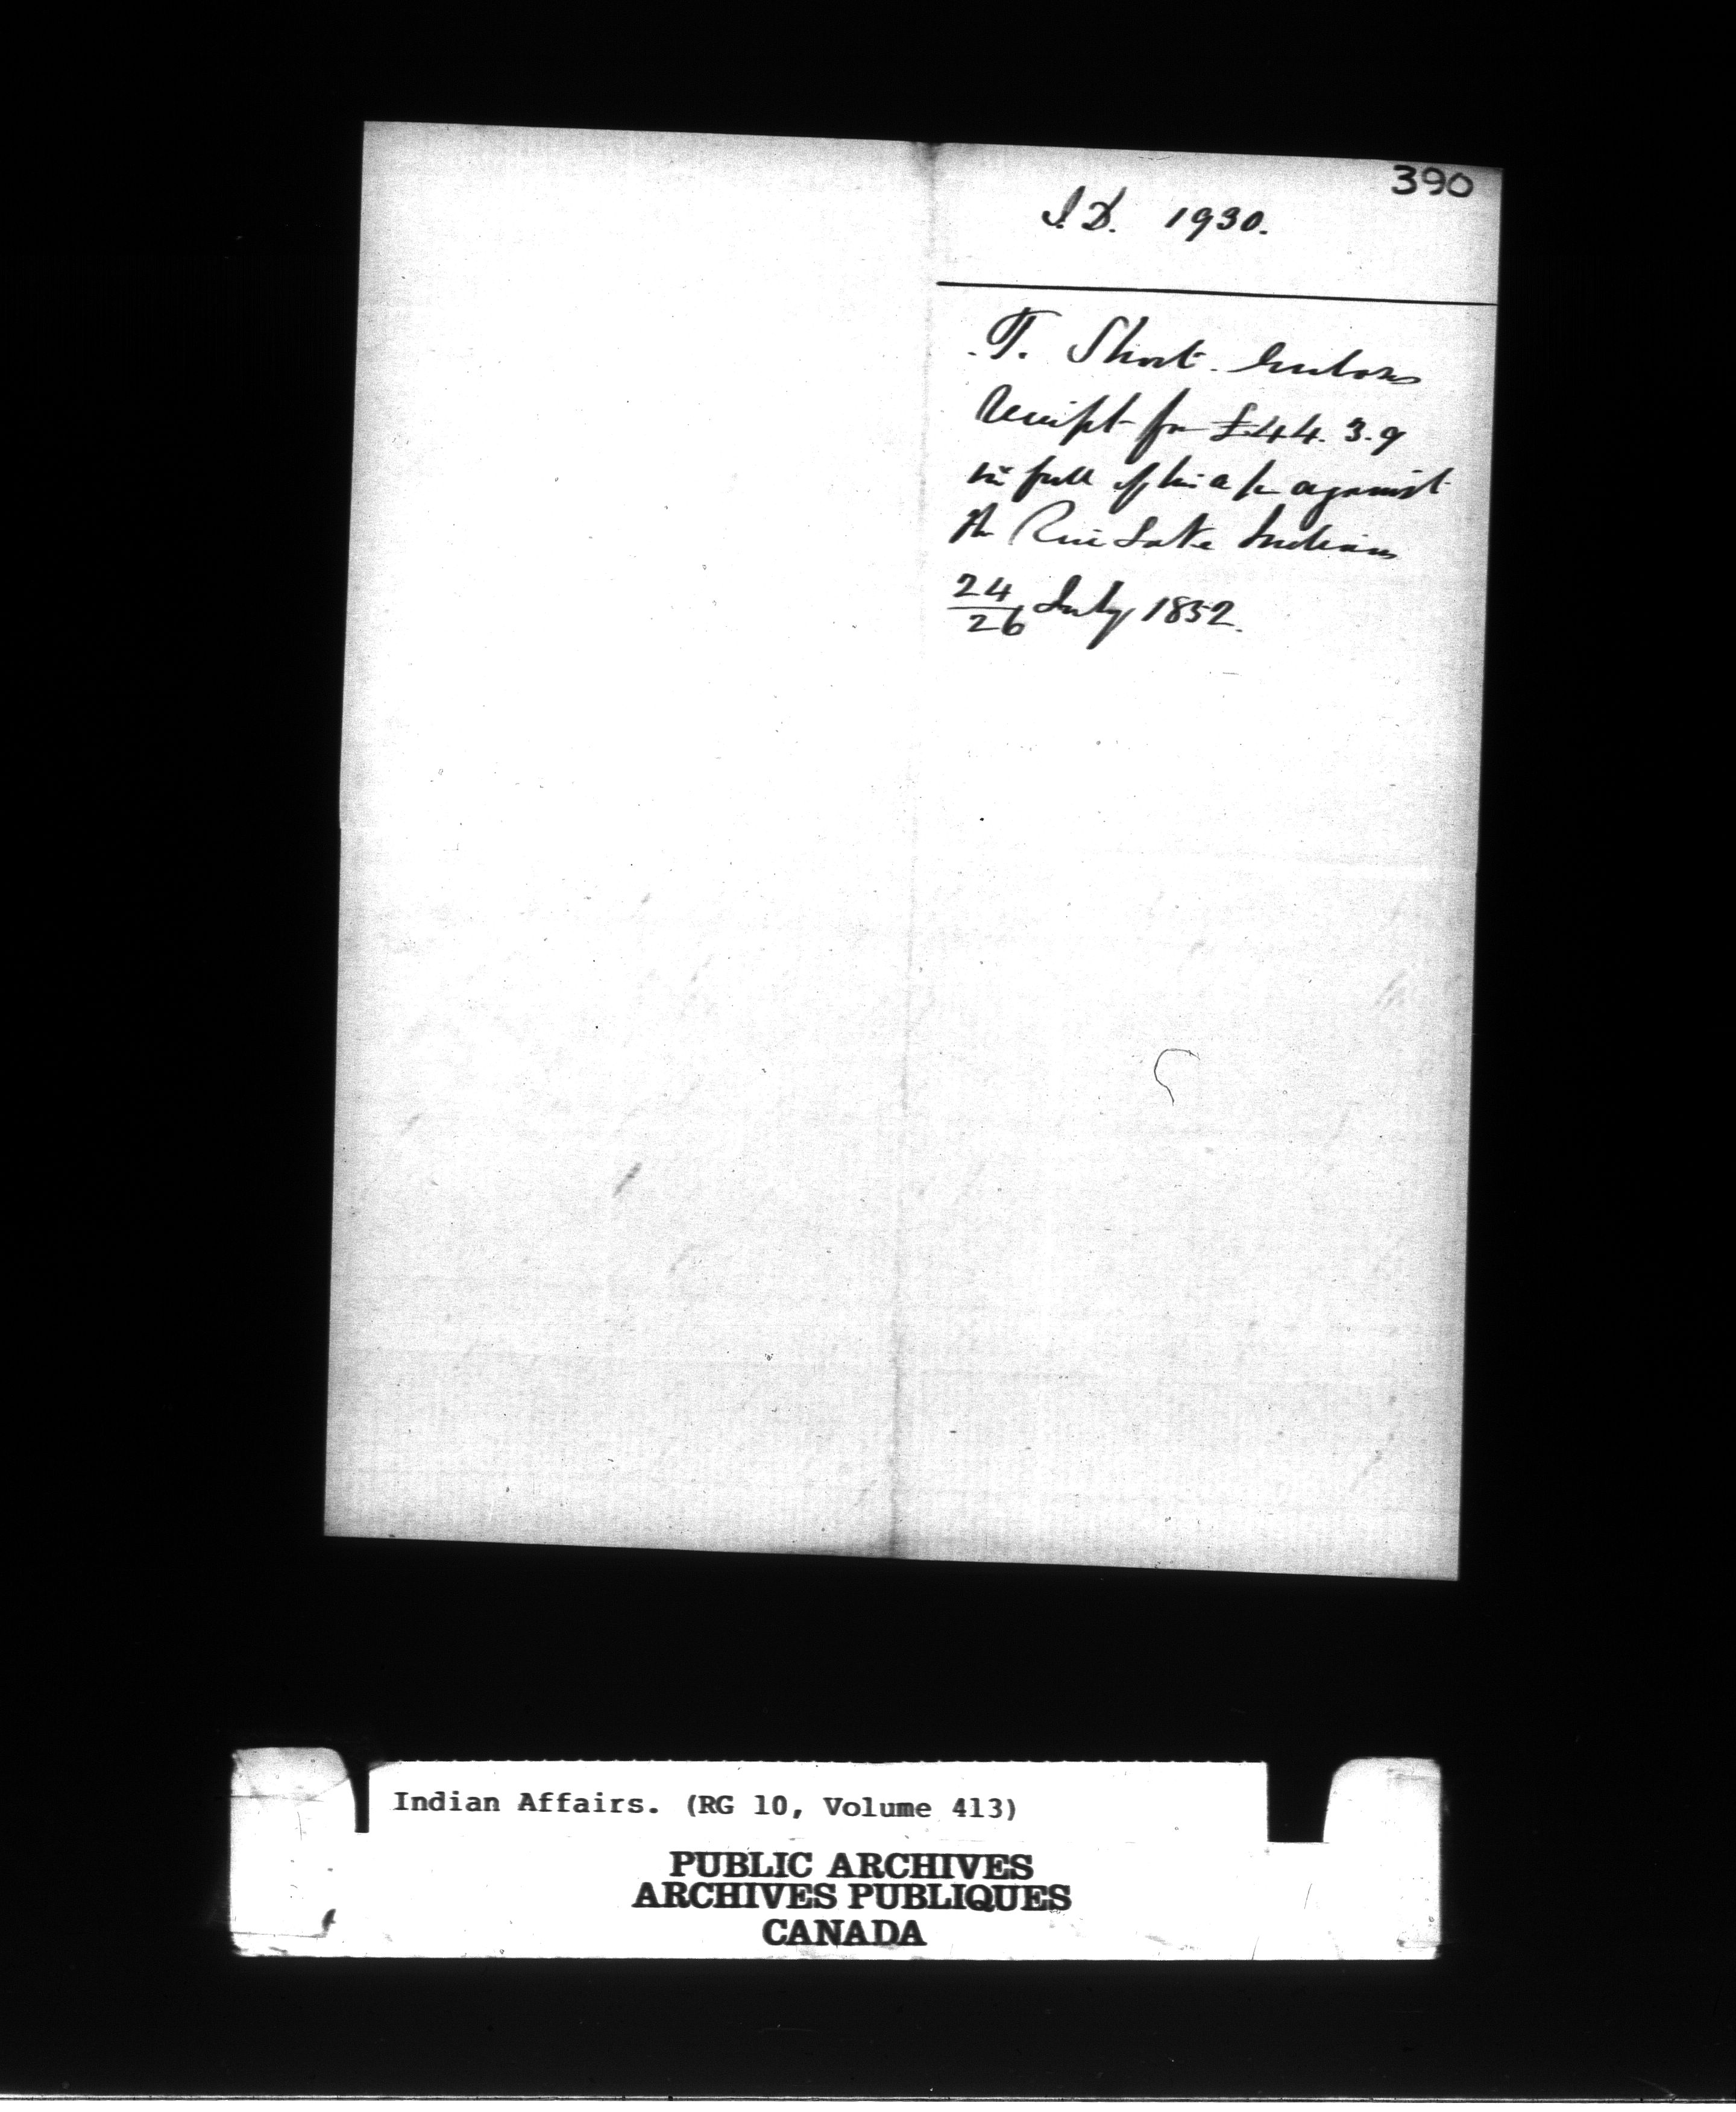 390
I.D. 1930.
T. Short. Encloses
Receipt for £44. 3. 9
in full of his a/c against
the Rice Lake Indians
24/26 July 1852.
Indian Affairs. (RG 10, Volume 413)
PUBLIC ARCHIVES
ARCHIVES PUBLIQUES
CANADA